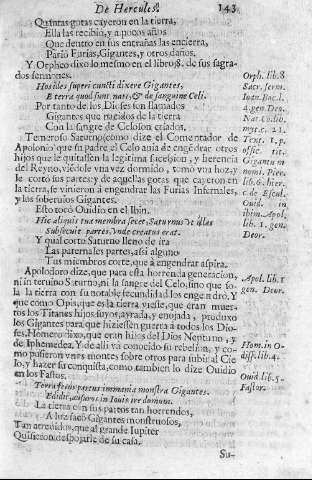 De Hercules. 143
Quantas gotas cayeron en la tierra,
Ella las recibio, y a pocos años
Que dentro en sus entrañas las encierra,
Pario Furias, Gigantes, y otros daños.
Y Orpheo dixo lo mesmo en el libro 8. de sus sagrados
sermones.
Hos ideo superi cuncti dixere Gigantes,
E terra quod sint nati, & de sanguine Celi.
Por tanto de los Dioses son llamados
Gigantes que nacidos de la tierra
Con la sangre de Celo son criados,
Temeroso Saturno (como dize el Comentador de
Apolonio que su padre el Celo auia de engendrar otros
hijos que le quitassen la legitima sucession, y herencia
del Reyno, viendole una vez dormido, tomo una hoz, y
le corto sus partes, y de aquellas gotas que cayeron en
la tierra, se vinieron à engendrar las Furias Infernales,
y los soberuios Gigantes.
Esto tocò Ouidio en el Ibin.
Hic aliquis tua membra secet, Saturnus ut illas
Subsecuit partes, unde creatus erat.
Y qual cortò Saturno lleno de ira
Las paternales partes, assi alguno
Tus miembros corte, que à engendrar aspira.
Apolodoro dize, que para esta horrenda generacion,
ni intervino Saturno, ni la sangre del Celo, sino que sola
la tierra con su notable fecundidad los engendrò. Y
que como Opis, que es la tierra viesse, que eran muertos
los Titanes hijos suyos, ayrada, y enojada, produxo
los Gigantes para que hiziessen guerra à todos los Dioses.
Homero dixo, que eran hijos del Dios Neptuno, y
de Iphemedea. Y de alli va conocido su rebelion, y como
pusieron unos montes sobre otros para subir al Cielo,
y hazer su conquista, como tambien lo dize Ouidio
en los Fastos.
Terra feros partus immania monstra Gigantes.
Edidit, ausuros in Iouis ire domum.
La tierra con sus partos tan horrendos,
A luz sacò Gigantes monstruosos,
Tan atreuidos, que al grande Iupiter
Quisieron despojarle de su casa.
Su-
Orph. lib. 8
Sacr. serm.
Ioan. Boc. l.
4. gen. Deo.
Nat. Co. lib.
mys. c. 21.
Text. 1. p.
offic. tit.
Gigantũ
nomi. Pier.
lib. 6. hier.
Ouid. in
ibim. Apol.
lib. 1. gen.
Deor.
Apol. lib. 1
gen. Deor.
Hom. in O-
diss. lib. 4.
Ouid. lib. 5.
Fastor.